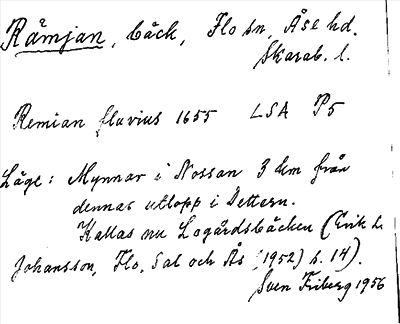 Råmjan, bäck, Flo sn, Åse hd.
Skarab. l.
Remian fluvius 1655 LSA P5
Läge: Mynnar i Nossan 3 km från
dennas utlopp i Dettern.
Kallas nu Logårdsbäcken (Erik L.
Johansson, Flo, Sal och Ås (1952) s. 14).
Sven Friberg 1956